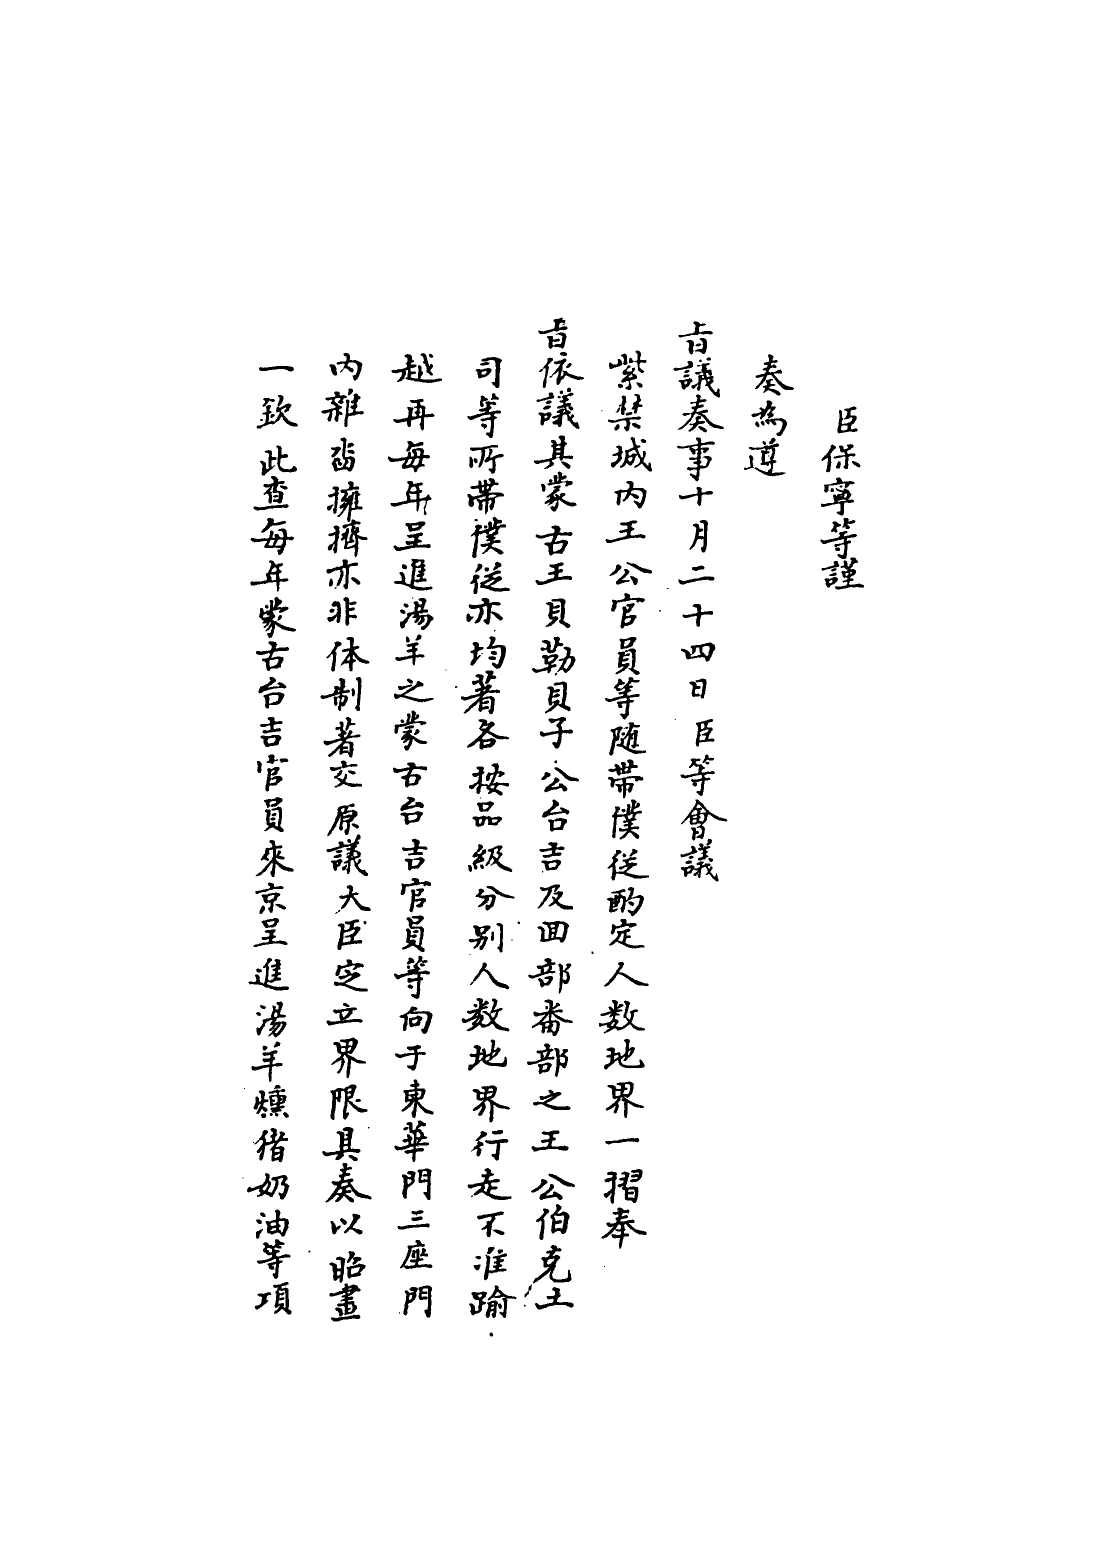 臣保寧等謹
奏為遵
旨議奏事十月二十四日臣等會議
紫禁城内王公官員等随帶僕從酌定人数地界一摺奉
旨依議其蒙古王貝勒貝子公台吉及回部番部之王公伯克土
司等所帶僕從亦均著各按品級分别人数地界行走不准踰
越再每年呈進湯羊之蒙古台吉官員等向于東華門三座門
内雜沓擁擠亦非体制著交原議大臣定立界限具奏以昭畫
一欽此查每年蒙古台吉官員來京呈進湯羊燻猪奶油等項